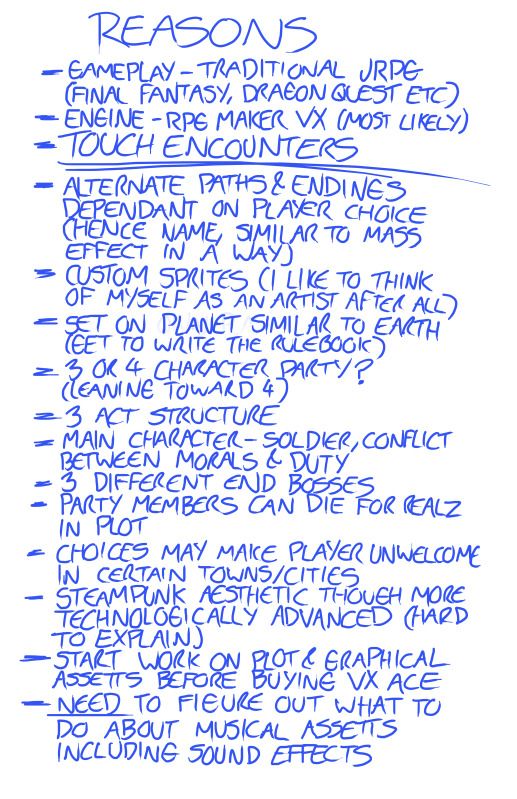 REASONS
- GAMEPLAY - TRADITIONAL JRPG
(FINAL FANTASY, DRAGON QUEST ETC)
- ENGINE - RPG MAKER VX (MOST LIKELY)
- TOUCH ENCOUNTERS
- ALTERNATE PATHS & ENDINGS
DEPENDANT ON PLAYER CHOICE
(HENCE NAME, SIMILAR TO MASS
EFFECT IN A WAY)
- CUSTOM SPRITES (I LIKE TO THINK
OF MYSELF AS AN ARTIST AFTER ALL)
- SET ON PLANET SIMILAR TO EARTH
(GET TO WRITE THE RULEBOOK)
- 3 OR 4 CHARACTER PARTY?
(LEANING TOWARD 4)
- 3 ACT STRUCTURE
- MAIN CHARACTER - SOLDIER, CONFLICT
BETWEEN MORALS & DUTY
- 3 DIFFERENT END BOSSES
- PARTY MEMBERS CAN DIE FOR REALZ
IN PLOT
- CHOICES MAY MAKE PLAYER UNWELCOME
IN CERTAIN TOWNS/CITIES
- STEAMPUNK AESTHETIC THOUGH MORE
TECHNOLOGICALLY ADVANCED (HARD
TO EXPLAIN)
- START WORK ON PLOT & GRAPHICAL
ASSETTS BEFORE BUYING VX ACE
- NEED TO FIGURE OUT WHAT TO
DO ABOUT MUSICAL ASSETTS
INCLUDING SOUND EFFECTS